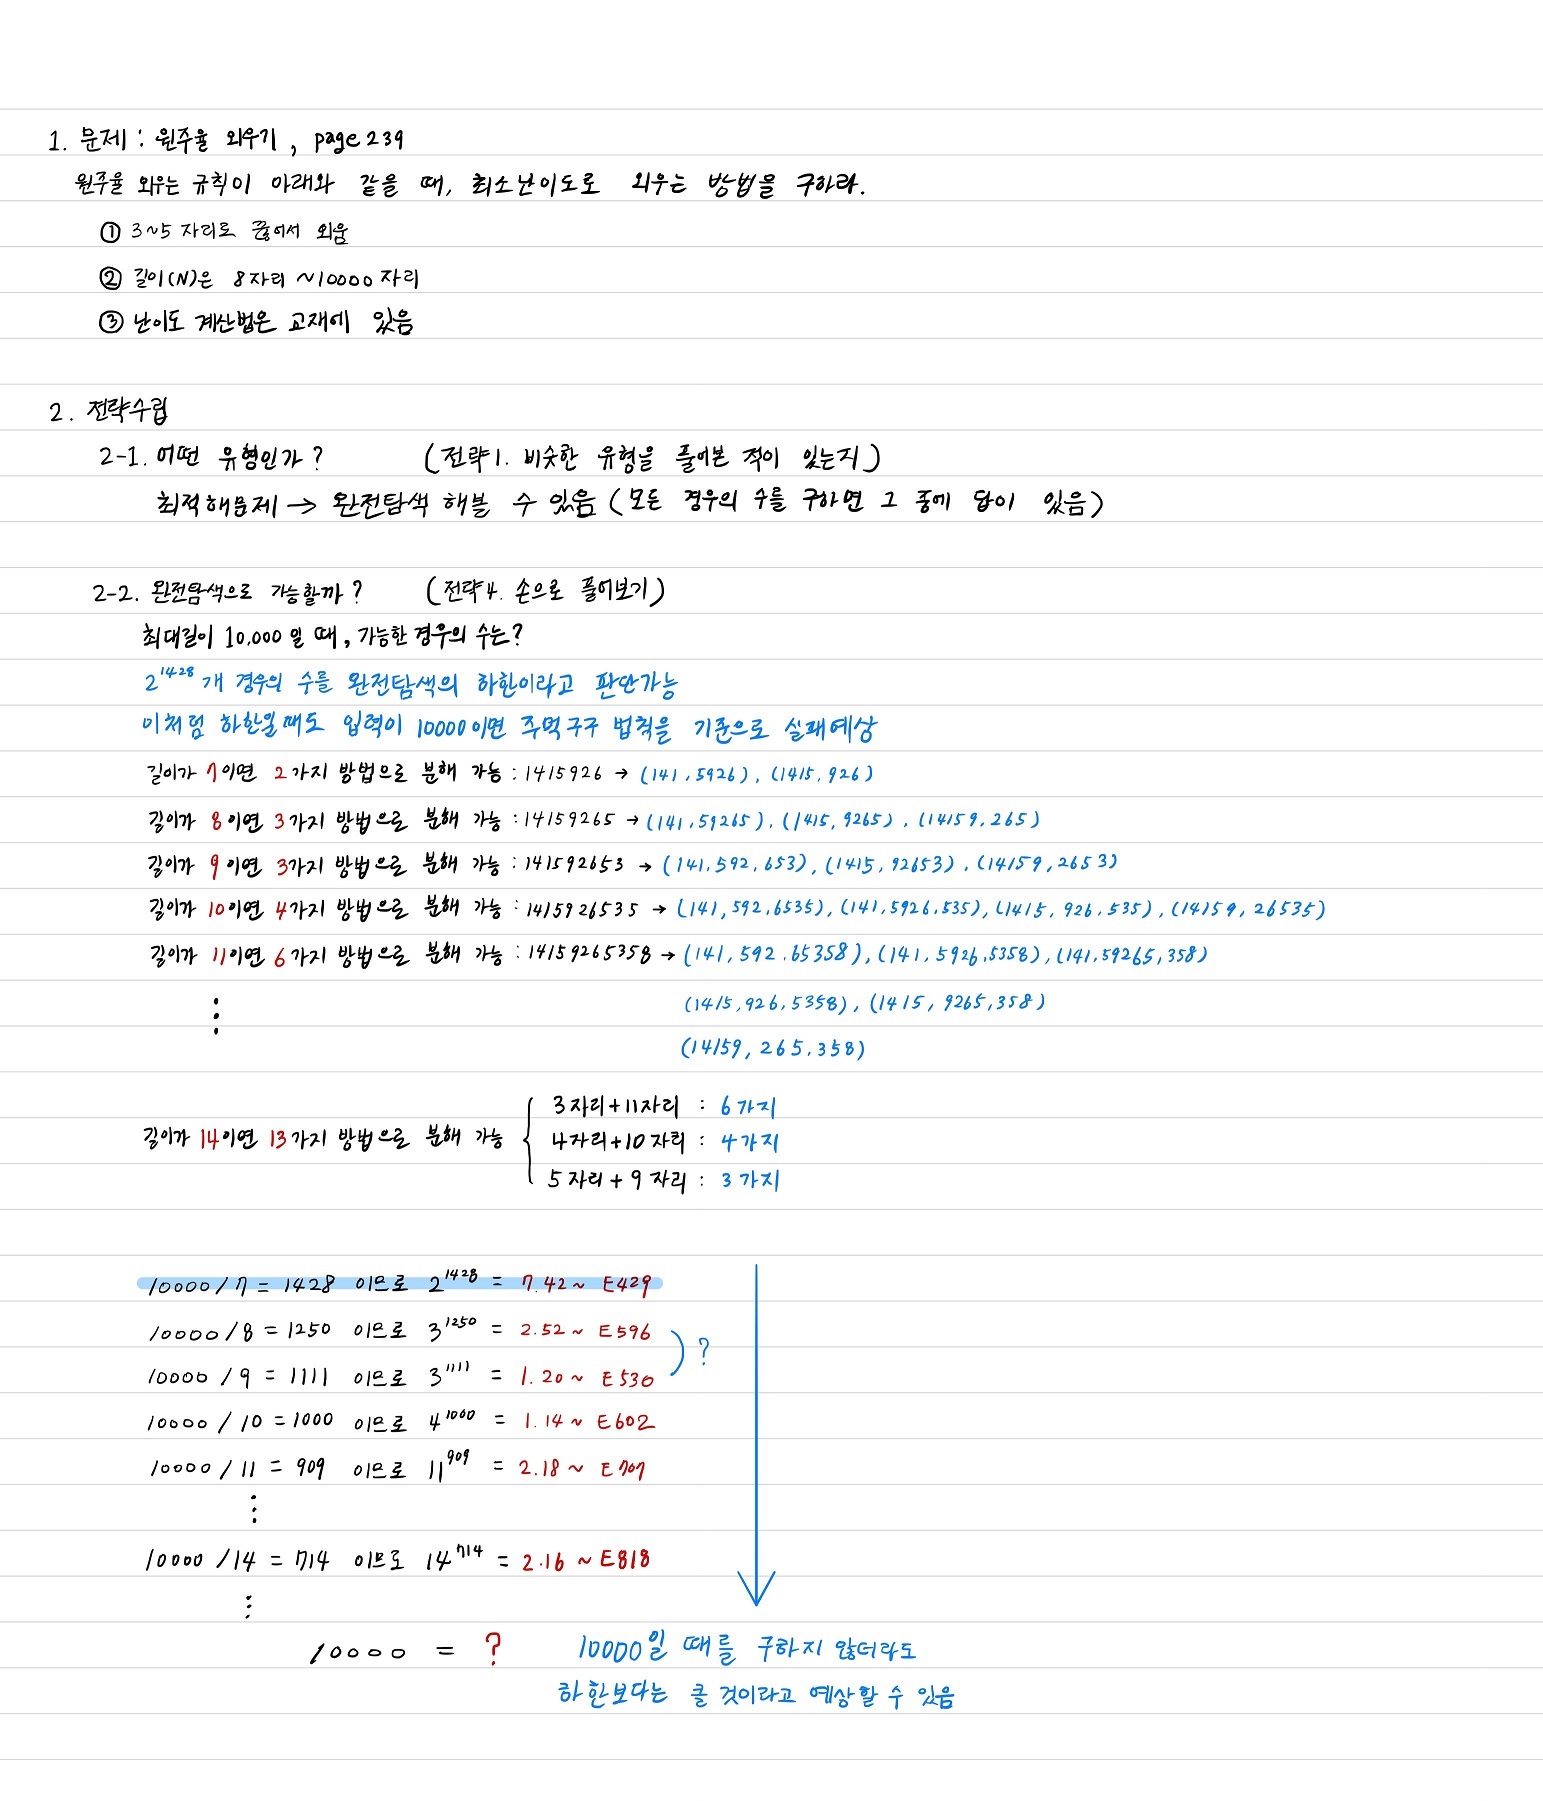 1. 문제 : 원주율 외우기, page 239
원주율 외우는 규칙이 아래와 같을 때, 최소난이도로 외우는 방법을 구하라.
① 3~5 자리로 끊어서 외움
② 길이(N)은 8자리 ~10000 자리
③ 난이도 계산법은 교재에 있음
2. 전략수립
2-1. 어떤 유형인가? (전략1. 비슷한 유형을 풀어본 적이 있는지)
최적해문제 → 완전탐색 해볼 수 있음 (모든 경우의 수를 구하면 그 중에 답이 있음)
2-2. 완전탐색으로 가능할까? (전략4. 손으로 풀어보기)
최대길이 10,000일 때, 가능한 경우의 수는?
2^1428 개 경우의 수를 완전탐색의 하한이라고 판단가능
이처럼 하한일때도 입력이 10000이면 주먹구구 법칙을 기준으로 실패예상
길이가 7이면 2가지 방법으로 분해 가능 : 1415926 → (141, 5926), (1415, 926)
길이가 8이면 3가지 방법으로 분해 가능 : 14159265 → (141, 59265), (1415, 9265), (14159, 265)
길이가 9이면 3가지 방법으로 분해 가능 : 141592653 → (141, 592, 653), (1415, 92653), (14159, 2653)
길이가 10이면 4가지 방법으로 분해 가능 : 1415926535 → (141, 592, 6535), (141, 5926, 535), (1415, 926, 535), (14159, 26535)
길이가 11이면 6가지 방법으로 분해 가능 : 14159265358 → (141, 592, 65358), (141, 5926, 5358), (141, 59265, 358)
⋮ (1415, 926, 5358), (1415, 9265, 358)
(14159, 265, 358)
3자리+11자리 : 6가지
길이가 14이면 13가지 방법으로 분해 가능 { 4자리+10자리 : 4가지
5자리+9자리 : 3가지
10000/7 = 1428 이므로 2^1428 = 7.42~ E429
10000/8 = 1250 이므로 3^1250 = 2.52~ E596
) ?
10000/9 = 1111 이므로 3^1111 = 1.20~ E530
10000/10 = 1000 이므로 4^1000 = 1.14~ E602
10000/11 = 909 이므로 11^909 = 2.18~ E707
⋮
10000/14 = 714 이므로 14^714 = 2.16~ E818
⋮
10000 = ? 10000일 때를 구하지 않더라도
하한보다는 클 것이라고 예상할 수 있음